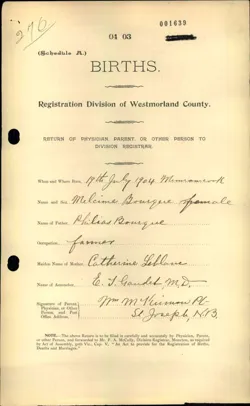 270
001639
01 03
(Schedule A.)
BIRTHS.
Registration Division of Westmorland County.
RETURN OF PHYSICIAN PARENT, OR OTHER PERSON TO
DIVISION REGISTRAR.
When and Where Born, 17th July 1904 Memramcook
Name and Sex Melcine Bourque female
Name of Father, Philias Bourque
Occupation, farmer
Maiden Name of Mother, Catherine Leblanc
Name of Accoucheur, E. T. Gaudet M.D.
Signature of Parent,
Physician, or other
Person, and Post
Office Address.
St. Joseph, N.B.
NOTE.—The above Return is to be filled in carefully and accurately by Physician, Parent,
or other Person, and forwarded to Mr. F. A. McCully, Division Registrar, Moncton, as required
by Act of Assembly, 50th Vic., Cap. V. "An Act to provide for the Registration of Births,
Deaths and Marriages."